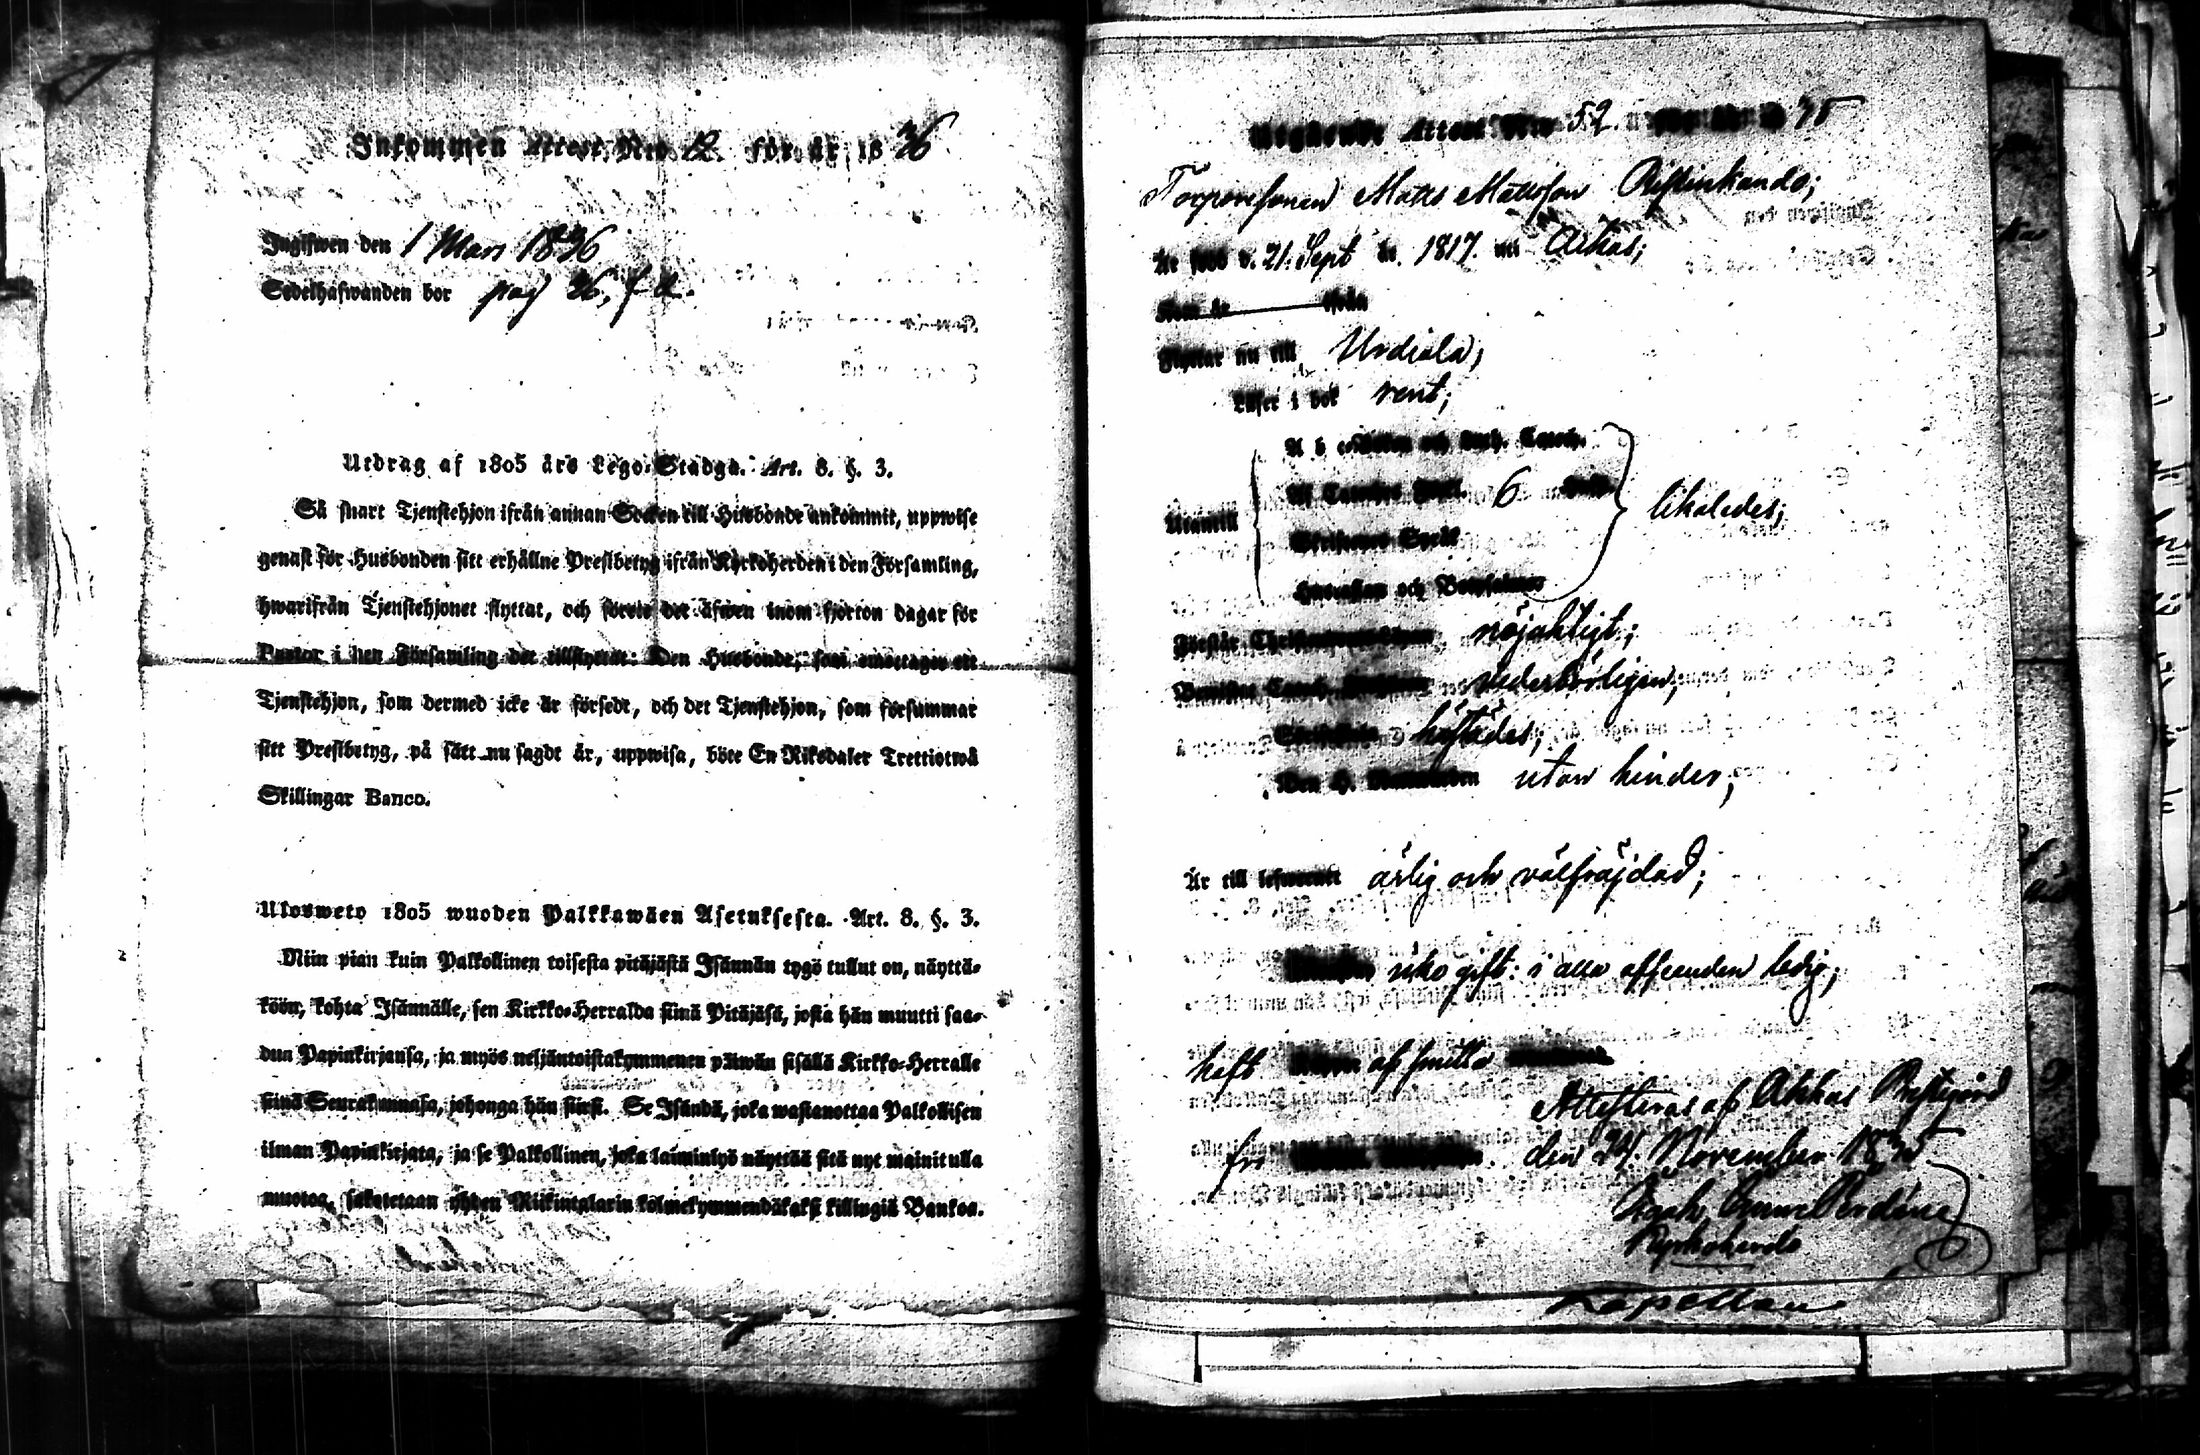 Inkommen Attest Nro 12. för år 1836
Ingifwen den 1 Mars 1836
Sedelhafwanden bor pag 26, f d.
Utdrag af 1805 års Lego-Stadga. Art. 8. §. 3.
Så snart Tjenstehjon ifrån annan Socken till Husbonde ankommit, uppwise
genast för Husbonden sitt erhållne Prestbetyg ifrån Kyrkoherden i den Församling,
hwarifrån Tjenstehjonet flyttat, och förete det äfwen inom fjorton dagar för
Pastor i den Församling det tillflyttat: Den Husbonde, som emottager ett
Tjenstehjon, som dermed icke är försedt, och det Tjenstehjon, som försummar
sitt Prestbetyg, på sätt nu sagdt är, uppwisa, böte En Riksdaler Trettiotwå
Skillingar Banco.
Ulosweto 1805 wuoden Palkkawäen Asetuksesta. Art. 8. §. 3.
Niin pian kuin Palkollinen toisesta pitäjästä Isännän tygö tullut on, näyttä-
köön, kohta Isännälle, sen Kirkko-Herralda siinä Pitäjäsä, josta hän muutti saa-
dun Papinkirjansa, ja myös neljäntoistakymmenen päiwän sisällä Kirkko-Herralle
siinä Seurakunnasa, johonga hän siirsi. Se Isändä, joka wastanottaa Palkollisen
ilman Papinkirjata, ja se Palkollinen, joka laiminlyö näyttää sitä nyt mainitulla
muotoa, sakotetaan yhden Riikintalarin kolmekymmendäkaksi killingiä Bankoa.
Utgående Attest Nro 52 för år 1835
Torparesonen Matts Mattsson Ristinkando;
Är född d. 21. Sept år 1817. uti Ackas;
Kom år ifrån
Flyttar nu till Urdiala;
Läser i bok rent;
A b c-Boken och Luth. Catech.
Af Cateches förkl. 6
Utantill likaledes;
Skriftenes Språk
Hustaflan och Botpsalmer
Förstår Christendoms-Läran nöjaktigt;
Bewistat Catech. vederbörligen;
Skriftskola häftades;
Den H. Nattvarden utan hinder;
Är till lefwernet ärlig och välfräjdad;
icke gift: i alla afseenden ledig;
haft af smitta
Attesteras af Akkas Prestgård
fri den 24 November 1835
Kyrkoherde
Kapellan